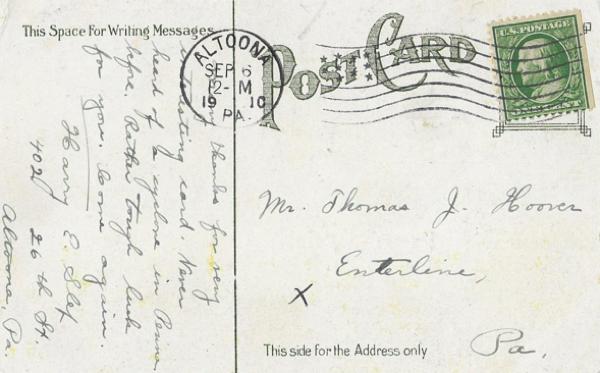 This Space For Writing Messages
POST CARD
ALTOONA
SEP 6
12-M
1910
PA.
U.S. POSTAGE
thanks for very
interesting card. Never
heard of a cyclone in Penna.
before. Rather tough luck
for you. Come again.
Harry E. Slep
402 26th St.
Altoona, Pa.
Mr. Thomas J. Hoover
Enterline,
X
Pa.
This side for the Address only